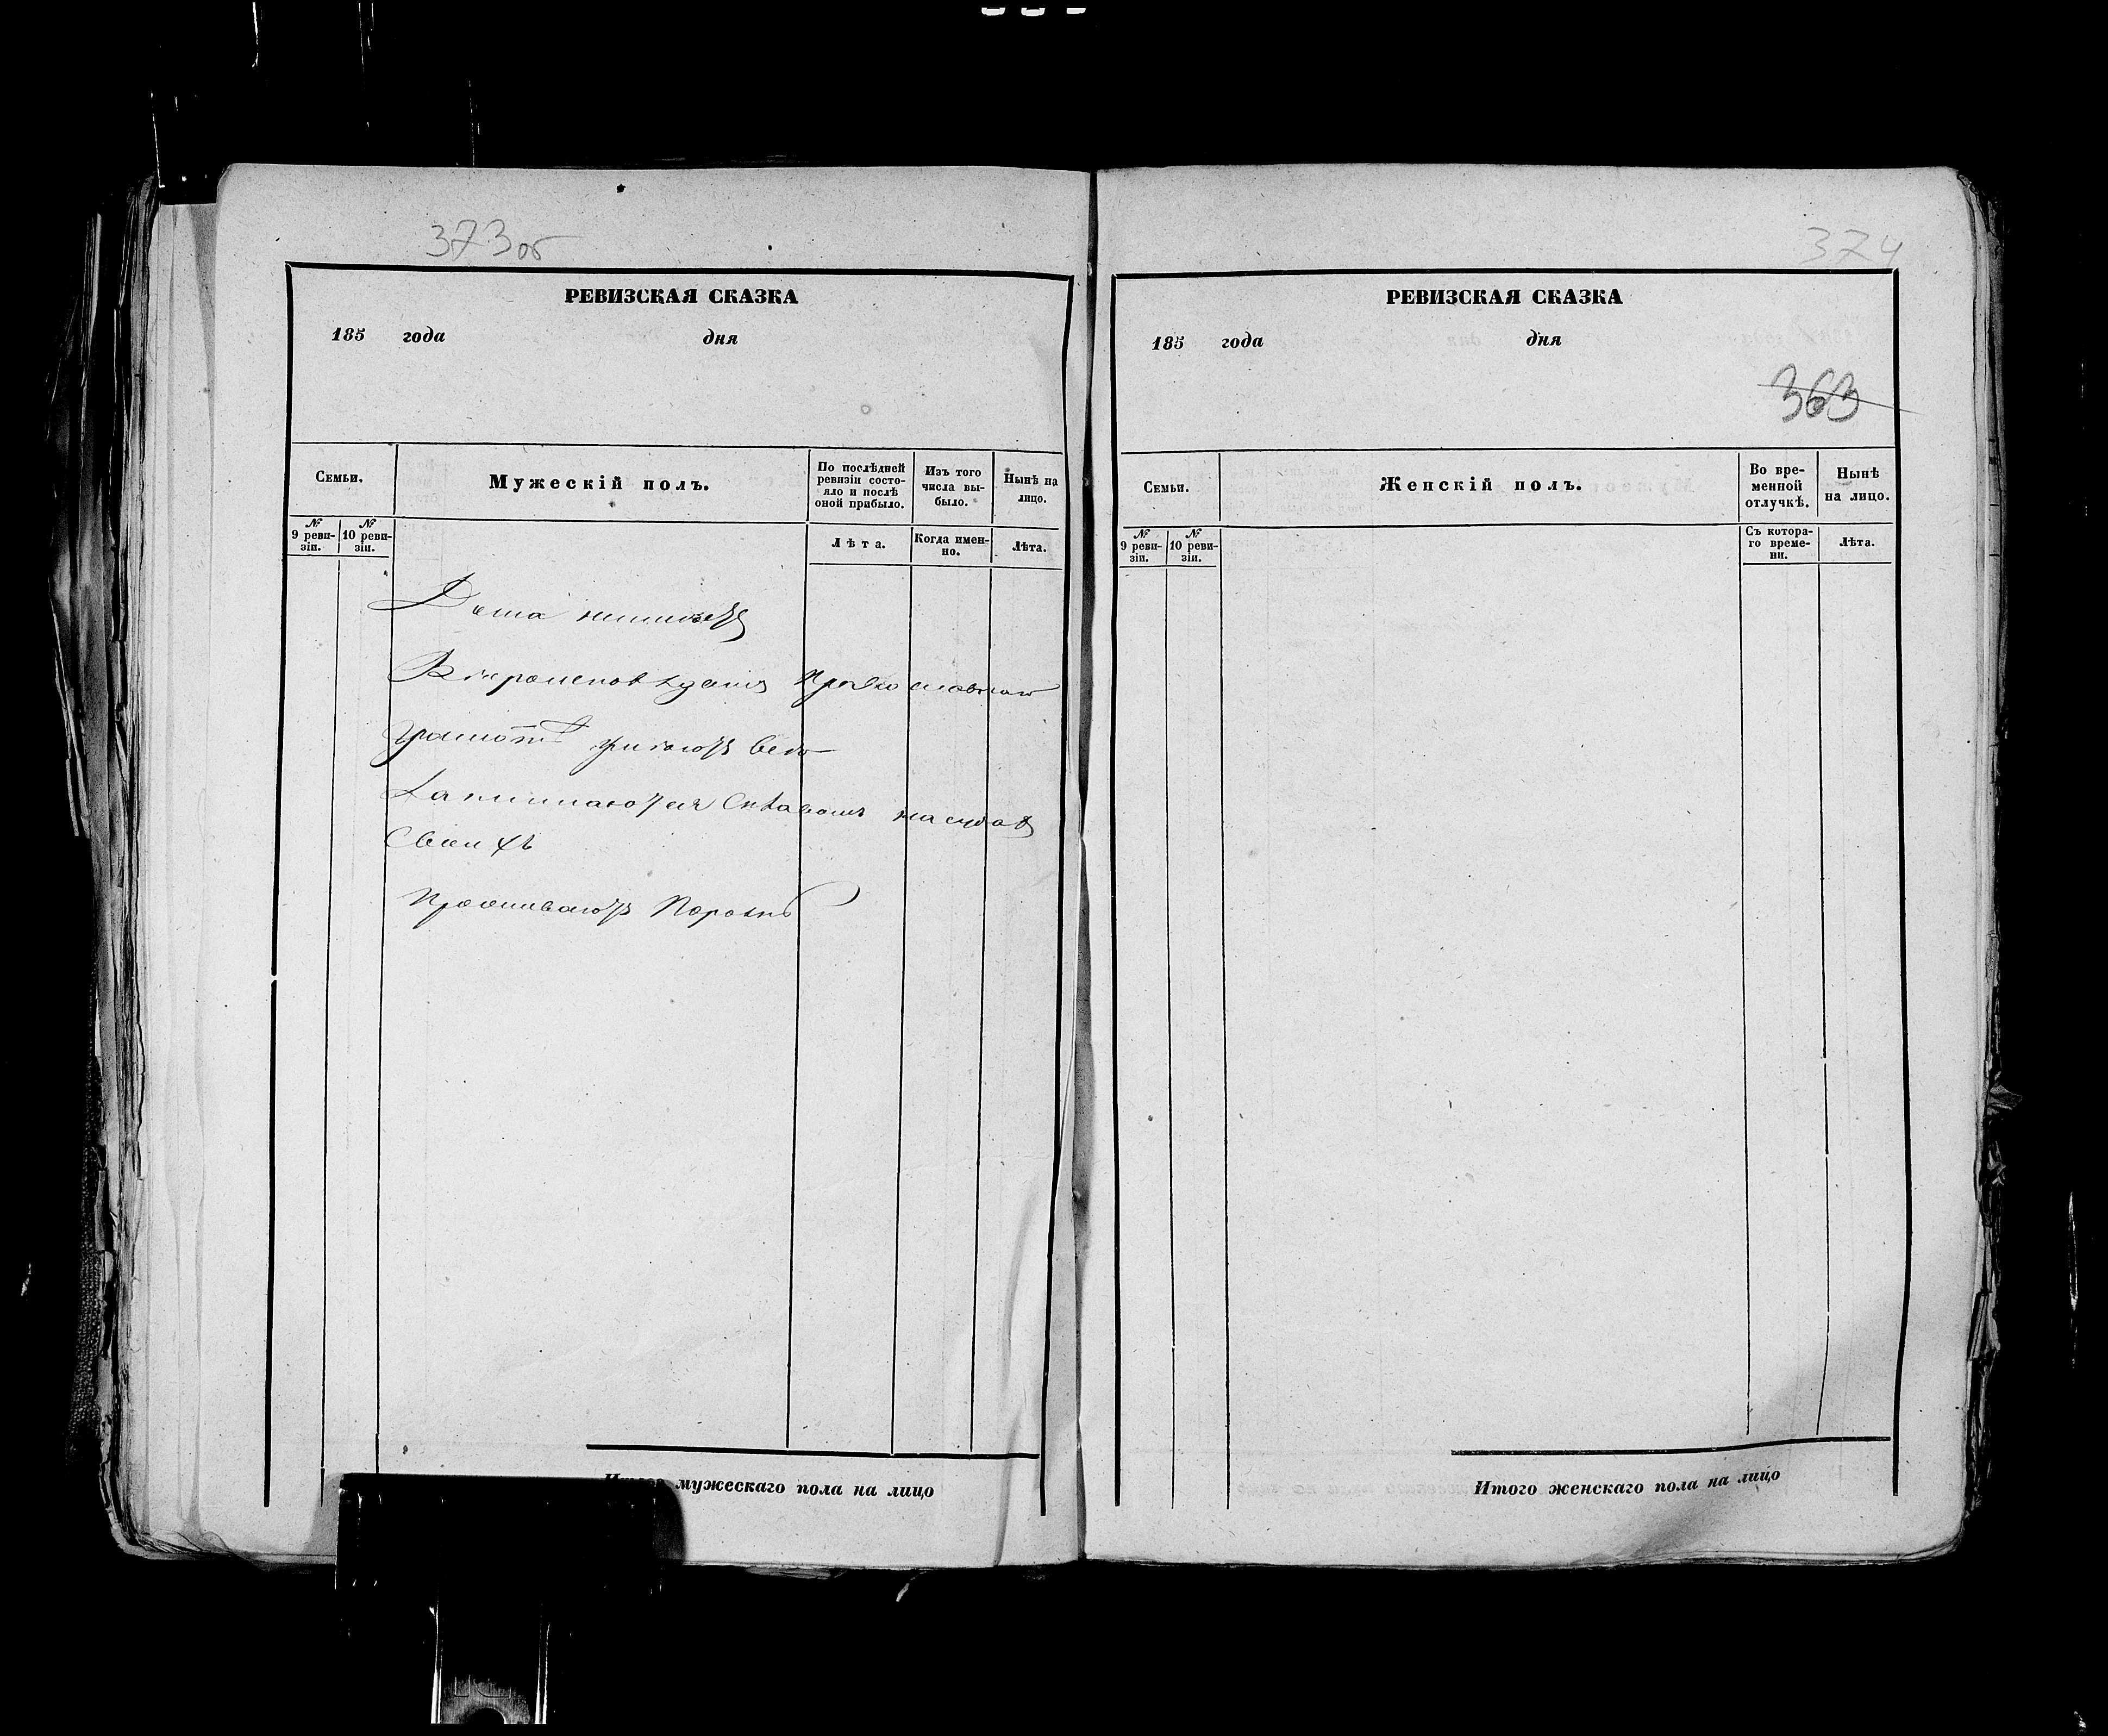 373об
РЕВИЗСКАЯ СКАЗКА
185 года дня
Семьи.
Мужескій полъ.
По послѣдней ревизіи состо-
яло и послѣ оной прибыло.
Изъ того числа вы-
было.
Нынѣ на лицо.
№ 9 реви-
зіи.
№ 10 реви-
зіи.
Лѣта.
Когда имен-
но.
Лѣта.
Дома
Вѣроисповѣданія Православнаго
грамотѣ
Занимаются
Своихъ
Проживаютъ
Итого мужескаго пола на лицо
374
РЕВИЗСКАЯ СКАЗКА
185 года дня
363
Семьи.
Женскій полъ.
Во вре-
менной
отлучкѣ.
Нынѣ
на лицо.
№ 9 реви-
зіи.
№ 10 реви-
зіи.
Съ котора-
го време-
ни.
Лѣта.
Итого женскаго пола на лицо